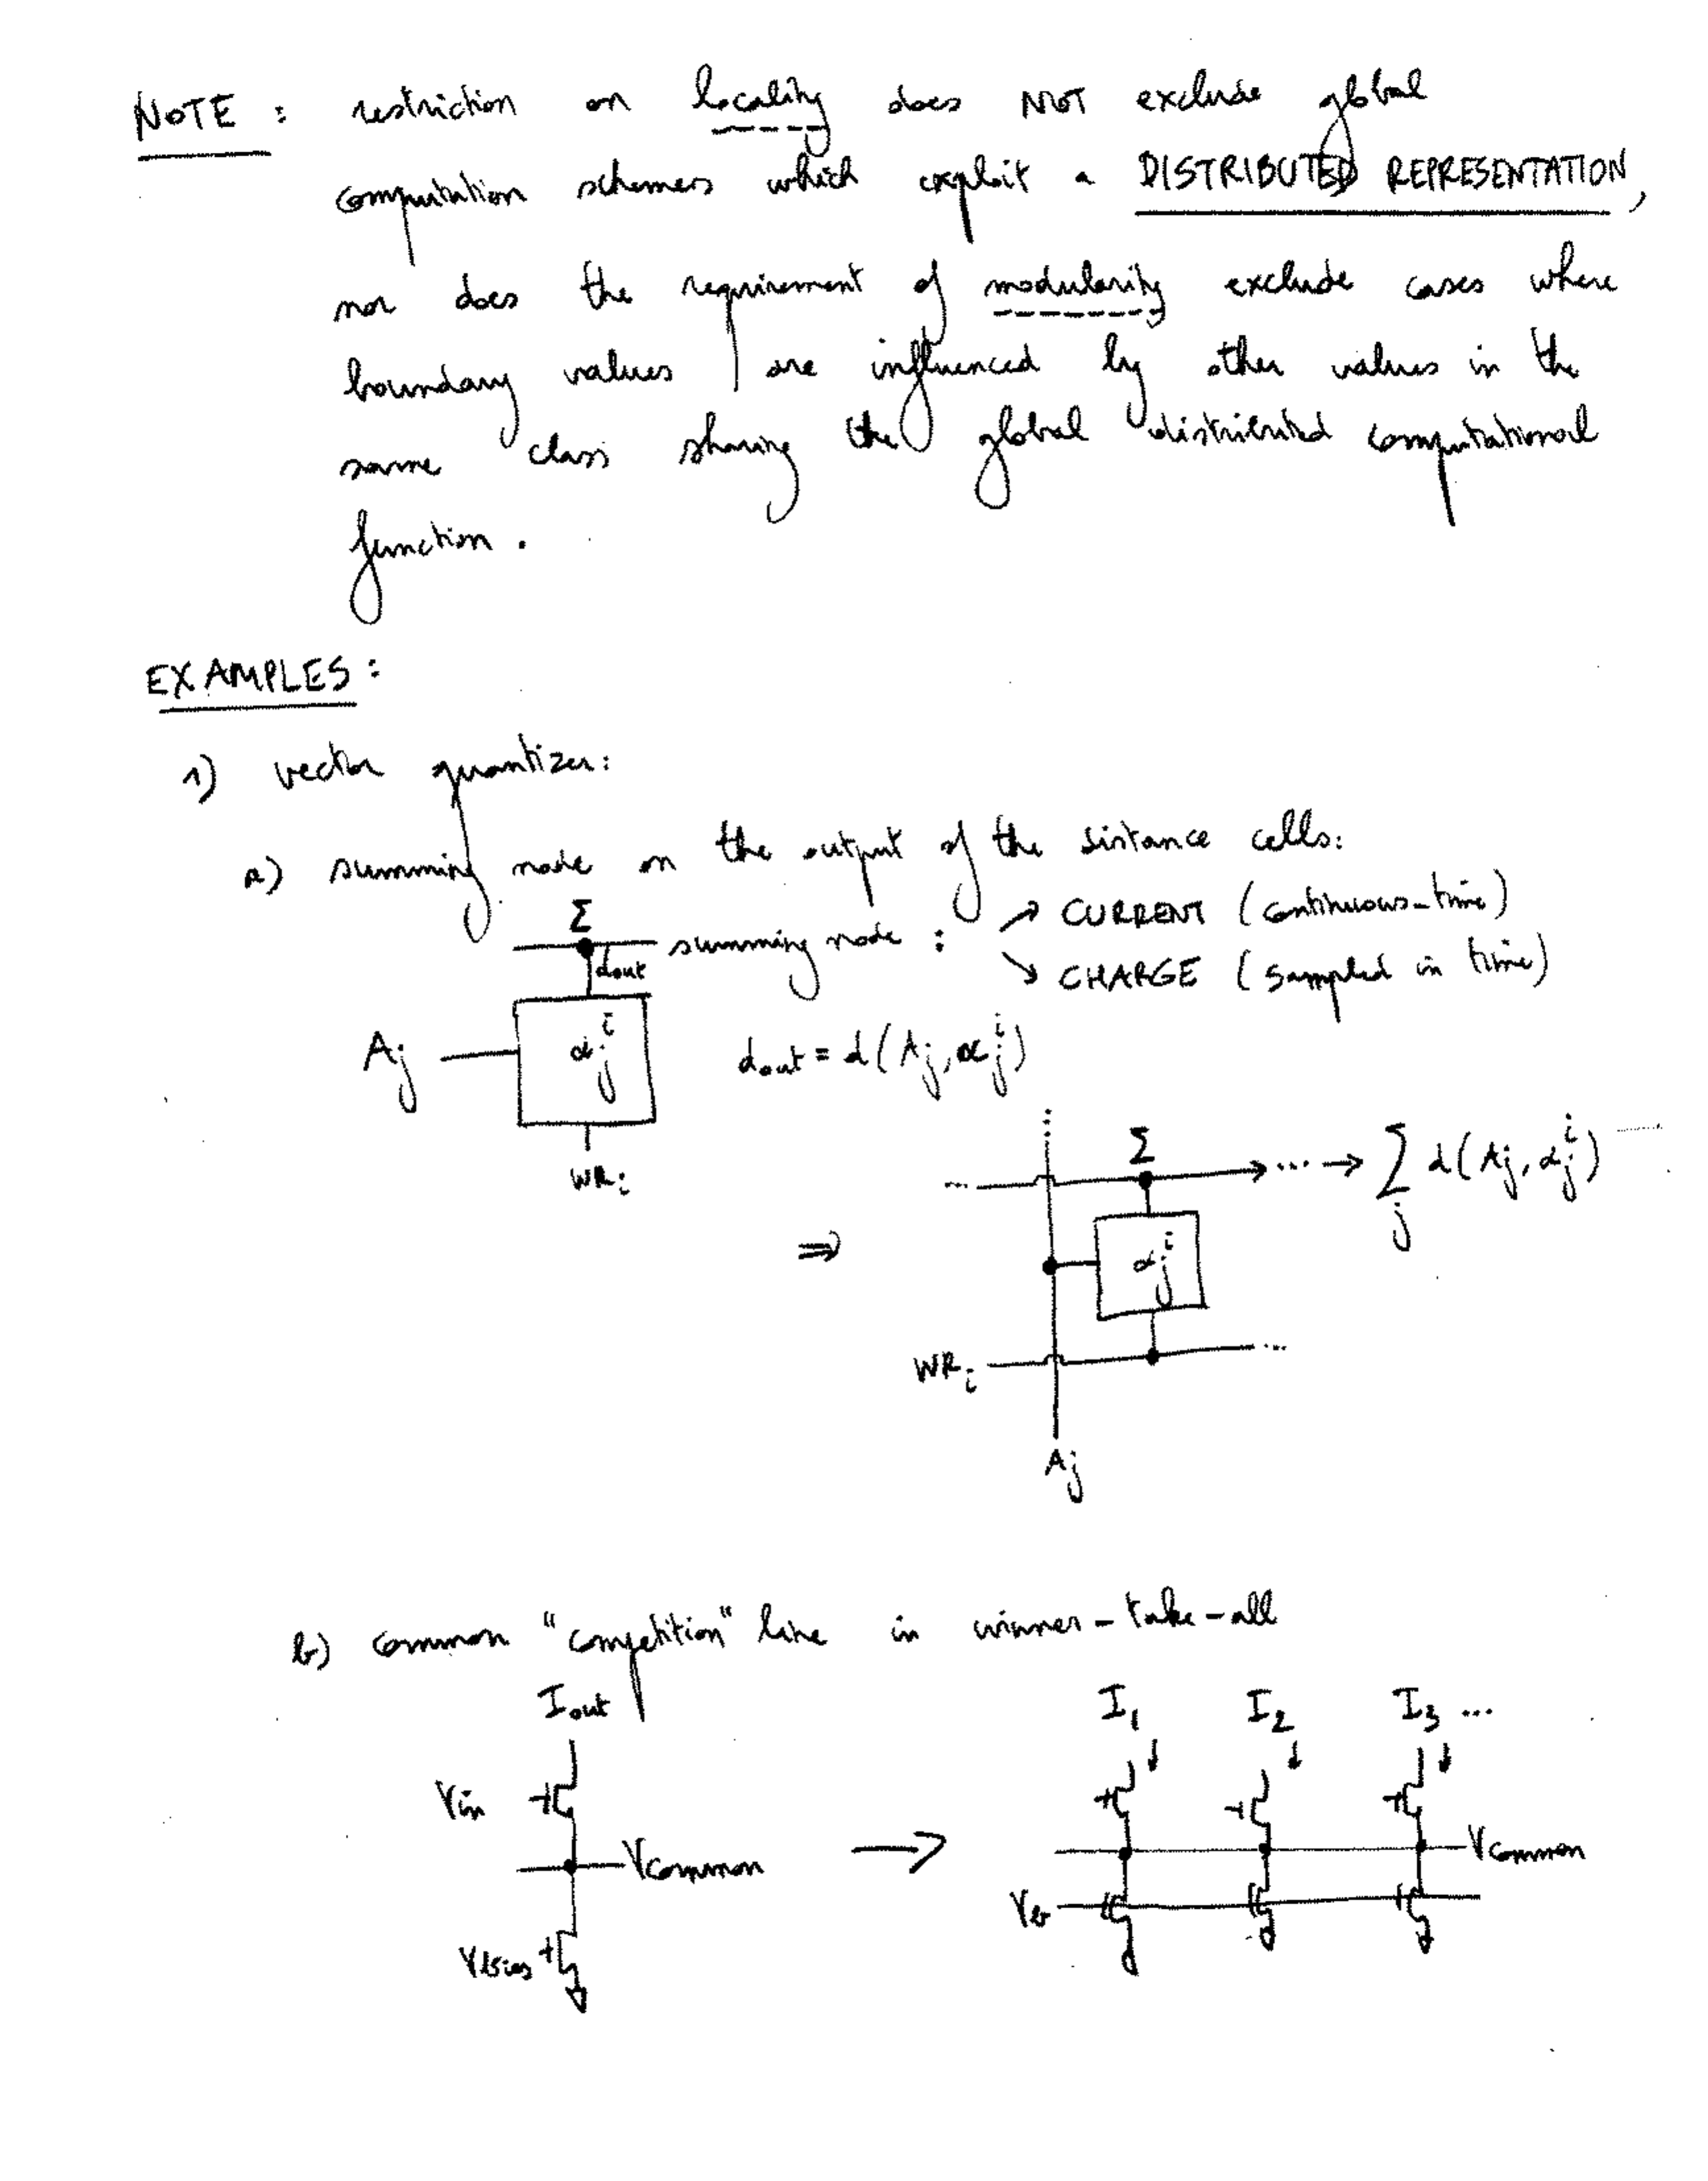 NOTE : restriction on locality does NOT exclude global
computation schemes which exploit a DISTRIBUTED REPRESENTATION,
nor does the requirement of modularity exclude cases where
boundary values are influenced by other values in the
same class sharing the global distributed computational
function.
EXAMPLES :
1) vector quantizer:
a) summing node on the output of the distance cells:
Σ
summing node : ↗ CURRENT (continuous-time)
↘ CHARGE (sampled in time)
dout
Aj
αj^i
dout = d(Aj, αj^i)
WRi
⇒
Σ
... → ... → Σj d(Aj, αj^i)
αj^i
WRi ...
Aj
b) common "competition" line in winner-take-all
Iout
I1 I2 I3 ...
Vin
Vcommon
→
Vcommon
Vb
Vbias